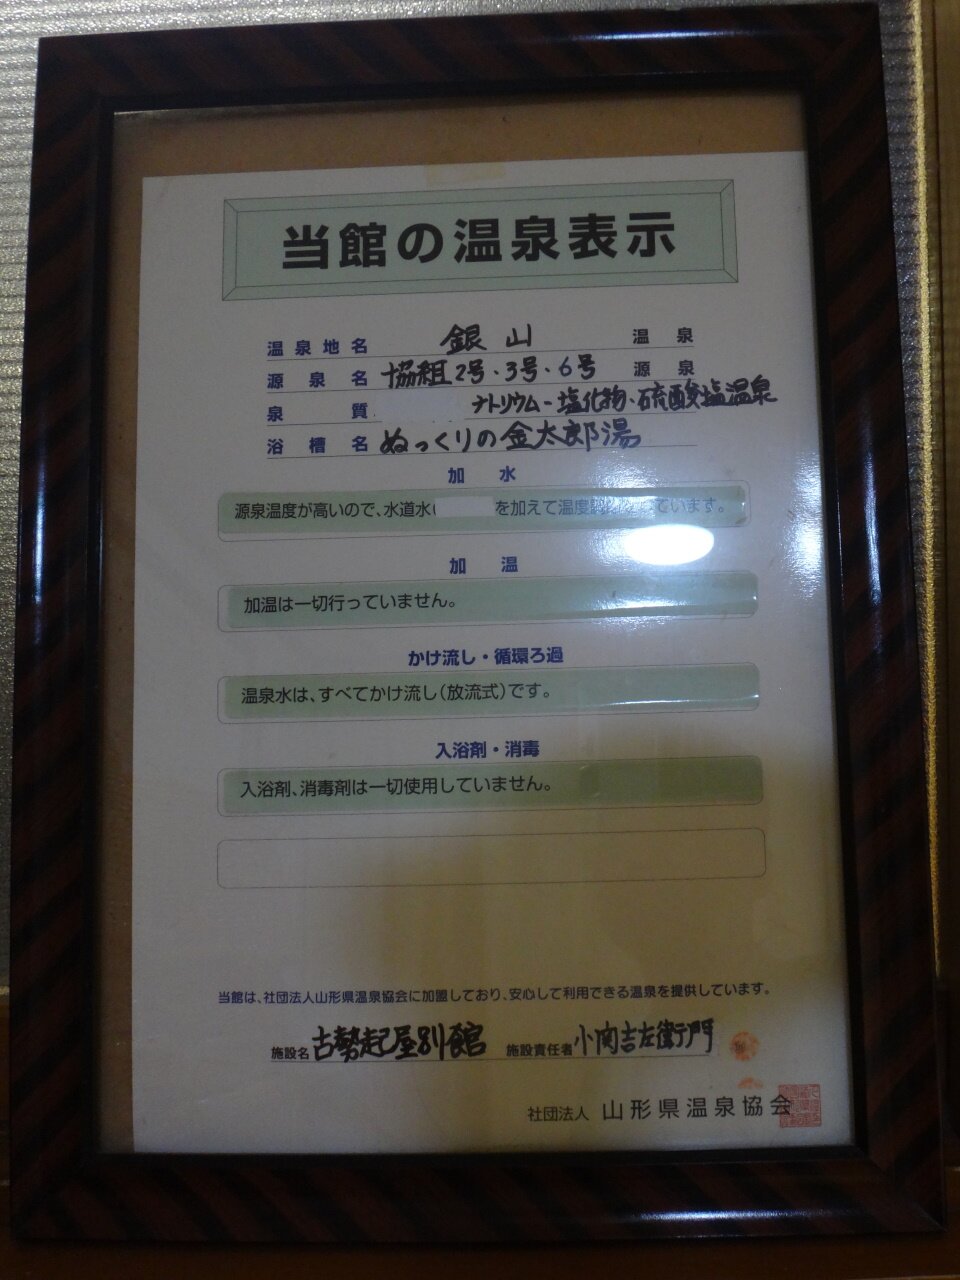 当館の温泉表示
温泉地名 銀山 温泉
源泉名 協組2号・3号・6号 源泉
泉質 ナトリウム-塩化物・硫酸塩温泉
浴槽名 ぬっくりの金太郎湯
加水
源泉温度が高いので、水道水( を加えて温度 ています。
加温
加温は一切行っていません。
かけ流し・循環ろ過
温泉水は、すべてかけ流し(放流式)です。
入浴剤・消毒
入浴剤、消毒剤は一切使用していません。
当館は、社団法人山形県温泉協会に加盟しており、安心して利用できる温泉を提供しています。
施設名 古勢起屋別館 施設責任者 小関吉左衛門
社団法人 山形県温泉協会